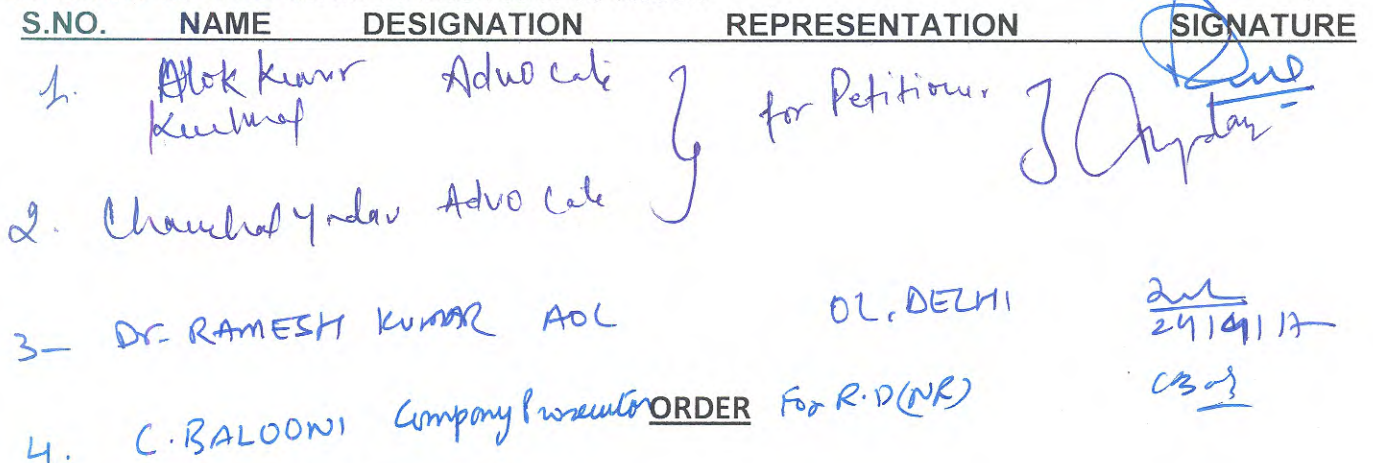 S.NO. NAME DESIGNATION REPRESENTATION SIGNATURE
1. Alok Kumar Advocate } for Petitioner. }
2. Chanchal Yadav Advocate
3- Dr. RAMESH KUMAR AOL OL, DELHI
24/4/17
4. C. BALOONI Company Prosecutor ORDER For R.D (NR)